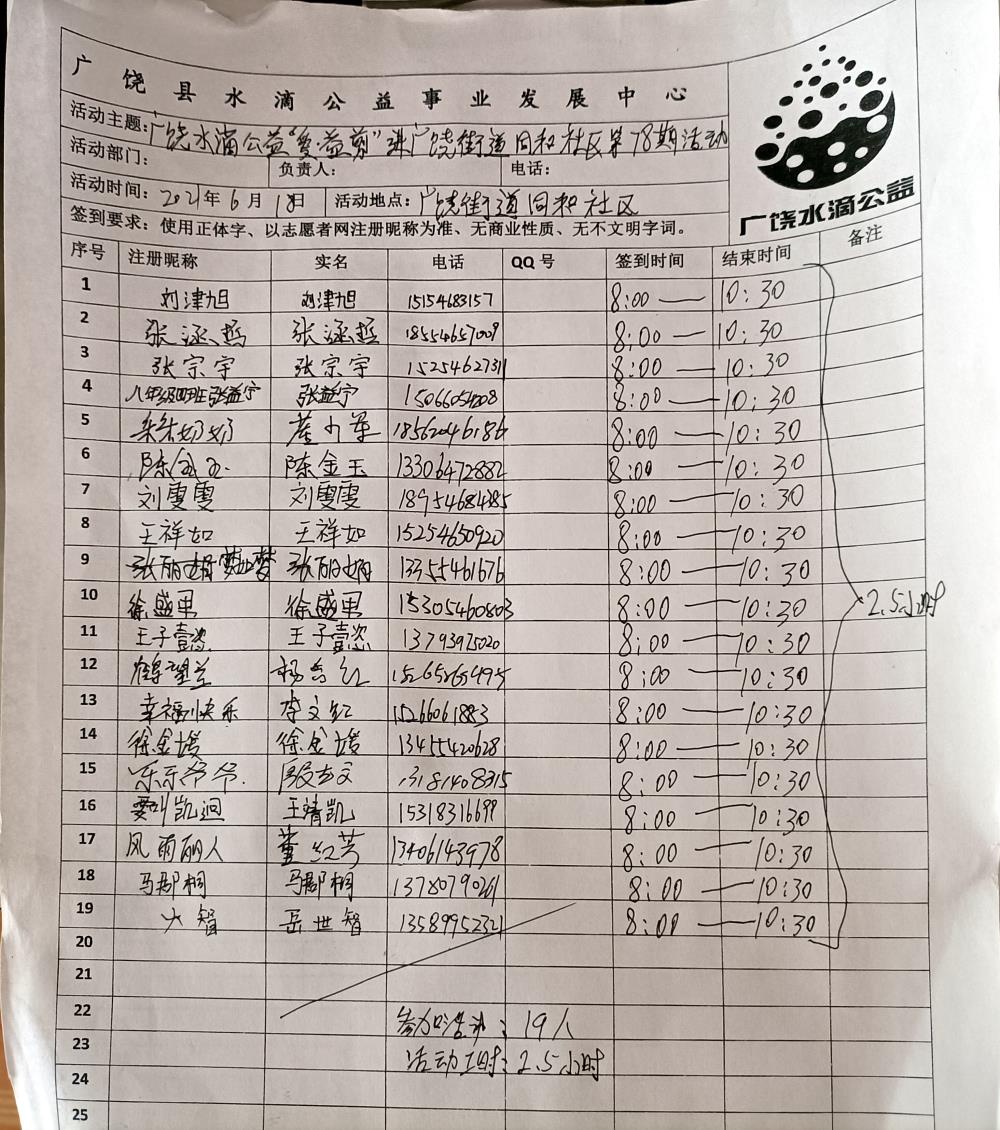 广饶县水滴公益事业发展中心
活动主题:广饶水滴公益"爱益剪"进广饶街道同和社区第78期活动
活动部门: 负责人: 电话:
活动时间: 2021年6月18日 活动地点: 广饶街道同和社区
签到要求: 使用正体字、以志愿者网注册昵称为准、无商业性质、无不文明字词。
广饶水滴公益
序号 注册昵称 实名 电话 QQ号 签到时间 结束时间 备注
1 刘津旭 刘津旭 15154683157 8:00 — 10:30
2 张涵哲 张涵哲 18554657009 8:00 — 10:30
3 张宗宇 张宗宇 15254627311 8:00 — 10:30
4 八年级四班张益宁 张益宁 15066054208 8:00 — 10:30
5 朵朵奶奶 18562046186 8:00 — 10:30
6 陈金玉 陈金玉 13306472882 8:00 — 10:30
7 刘雯雯 刘雯雯 18954684285 8:00 — 10:30
8 王祥如 王祥如 15254650920 8:00 — 10:30
9 张丽娟 张丽娟 13355461676 8:00 — 10:30
10 徐盛果 徐盛果 15305460803 8:00 — 10:30 2.5小时
11 王子壹恣 王子壹恣 13793975020 8:00 — 10:30
12 鹤望兰 杨红 15265265495 8:00 — 10:30
13 幸福快乐 李文红 15266061883 8:00 — 10:30
14 徐金媛 徐金媛 13455420628 8:00 — 10:30
15 乐乐爷爷 13181408315 8:00 — 10:30
16 要叫凯迴 王靖凯 15318316699 8:00 — 10:30
17 风雨丽人 董红芳 13406143978 8:00 — 10:30
18 马郡桐 马郡桐 13780790261 8:00 — 10:30
19 大智 岳世智 13589952321 8:00 — 10:30
20
21
22 参加活动: 19人
23 活动工时: 2.5小时
24
25